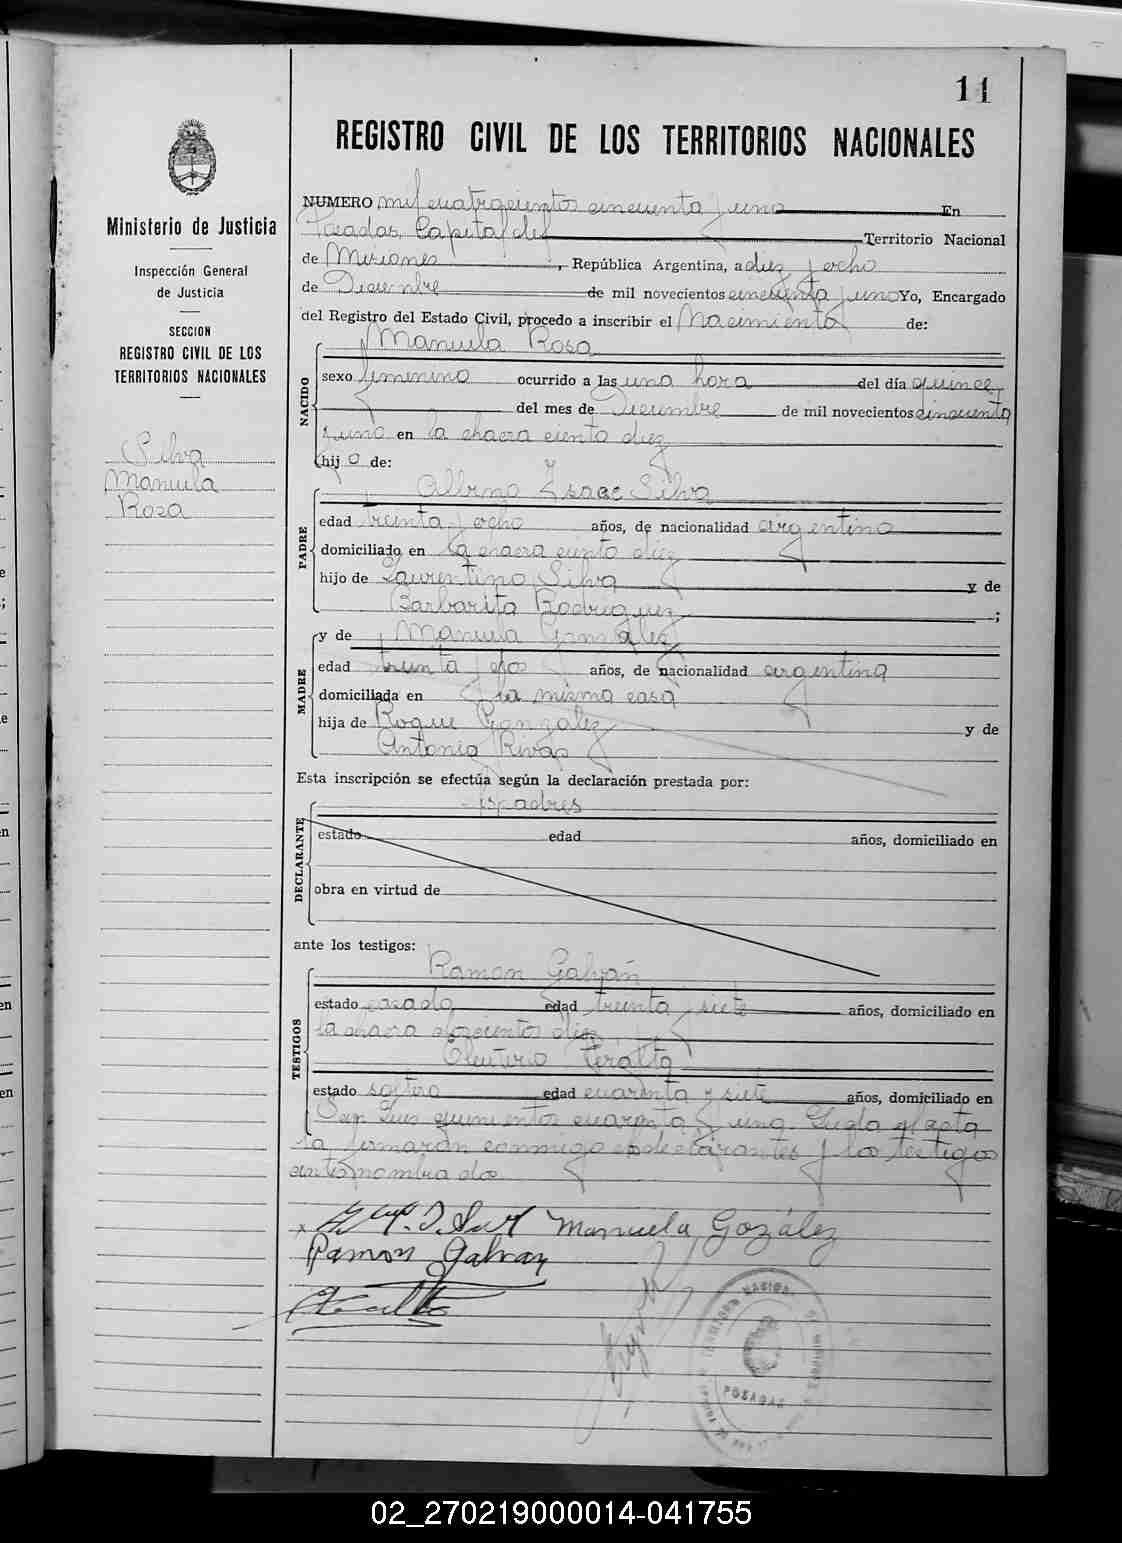 11
REGISTRO CIVIL DE LOS TERRITORIOS NACIONALES
Ministerio de Justicia
Inspección General
de Justicia
SECCION
REGISTRO CIVIL DE LOS
TERRITORIOS NACIONALES
Silva
Manuela
Rosa
NUMERO mil cuatrocientos cincuenta y uno En
Posadas, Capital del Territorio Nacional
de Misiones, República Argentina, a diez y ocho
de Diciembre de mil novecientos cincuenta y uno Yo, Encargado
del Registro del Estado Civil, procedo a inscribir el Nacimiento de:
NACIDO
Manuela Rosa
sexo femenino ocurrido a las una hora del día quince
del mes de Diciembre de mil novecientos cincuenta
y uno en la chacra ciento diez
hij a de:
PADRE
Albino Isaac Silva
edad treinta y ocho años, de nacionalidad argentino
domiciliado en la chacra ciento diez
hijo de Laurentino Silva y de
Barbarita Rodriguez ;
MADRE
y de Manuela González
edad treinta y dos años, de nacionalidad argentina
domiciliada en la misma casa
hija de Roque González y de
Antonia Rivas
Esta inscripción se efectúa según la declaración prestada por:
DECLARANTE
los padres
estado edad años, domiciliado en
obra en virtud de
ante los testigos:
TESTIGOS
Ramon Galván
estado casado edad treinta y siete años, domiciliado en
la chacra doscientos diez
Eleuterio Peralta
estado soltero edad cuarenta y siete años, domiciliado en
San Luis quinientos cuarenta y uno. Leida el acta
la firmaron conmigo los declarantes y los testigos
antes nombrados
Manuela Gozález
Ramon Galvan
POSADAS
02_270219000014-041755